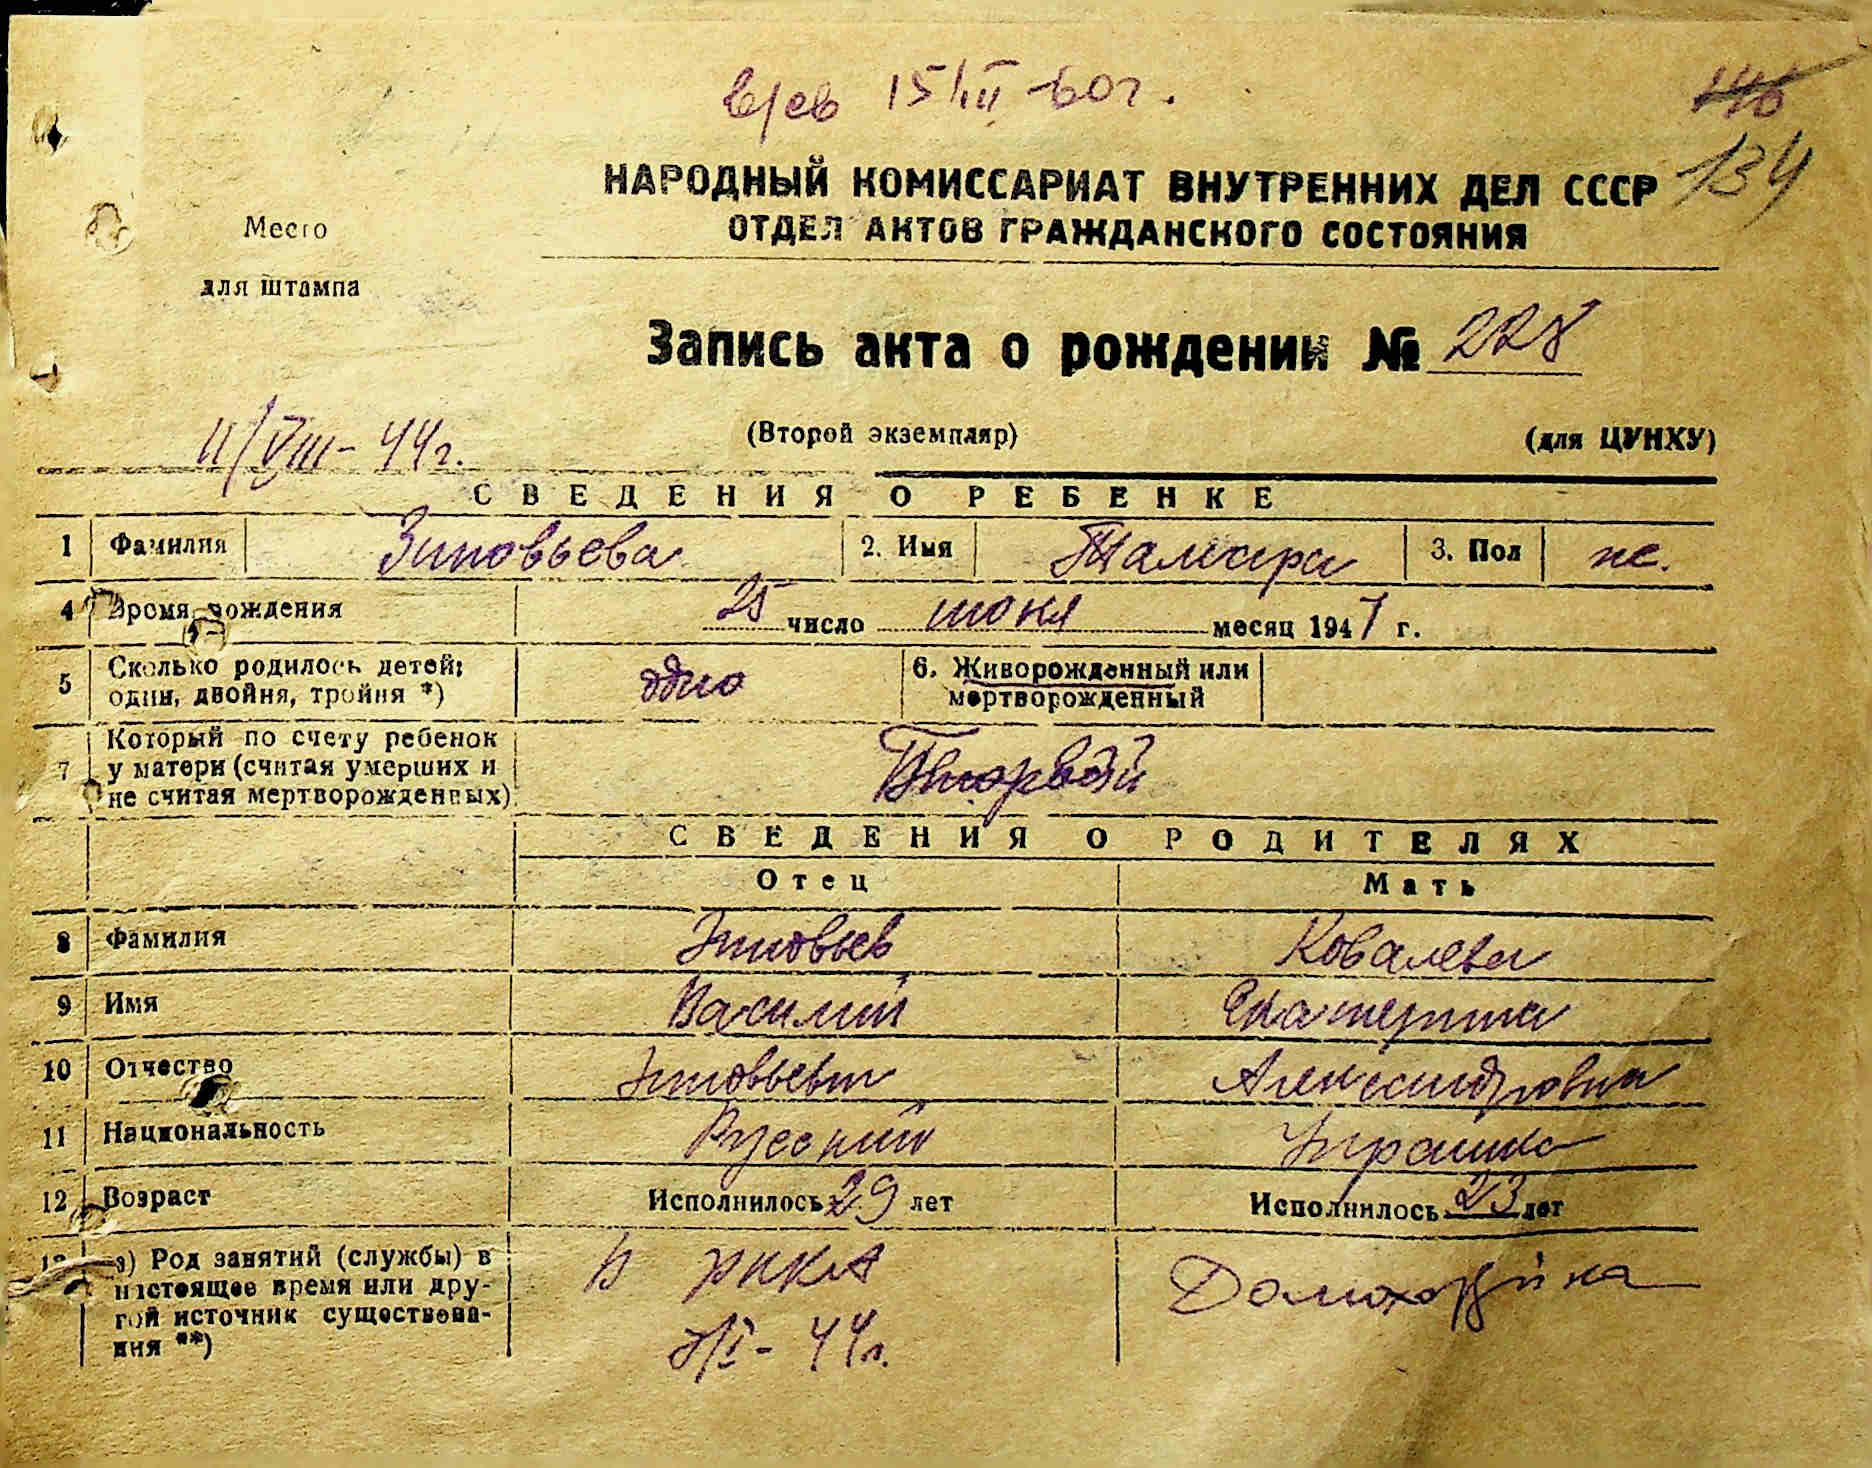 15/III-60г.
146
134
НАРОДНЫЙ КОМИССАРИАТ ВНУТРЕННИХ ДЕЛ СССР
ОТДЕЛ АКТОВ ГРАЖДАНСКОГО СОСТОЯНИЯ
Место
для штампа
Запись акта о рождении № 228
11/VIII-44г.
(Второй экземпляр)
(для ЦУНХУ)
СВЕДЕНИЯ О РЕБЕНКЕ
1 Фамилия Зиновьева 2. Имя Тамара 3. Пол ж.
4 Время рождения 25 число июня месяц 1941 г.
5 Сколько родилось детей;
один, двойня, тройня *) одно
6. Живорожденный или
мертворожденный
7 Который по счету ребенок
у матери (считая умерших и
не считая мертворожденных)
СВЕДЕНИЯ О РОДИТЕЛЯХ
Отец Мать
8 Фамилия Зиновьев Ковалева
9 Имя Василий Екатерина
10 Отчество Зиновьевич Александровна
11 Национальность Русский Украинка
12 Возраст Исполнилось 29 лет Исполнилось 23 лет
13 а) Род занятий (службы) в
настоящее время или дру-
гой источник существова-
ния **)
В РККА
Домохозяйка
I-44г.